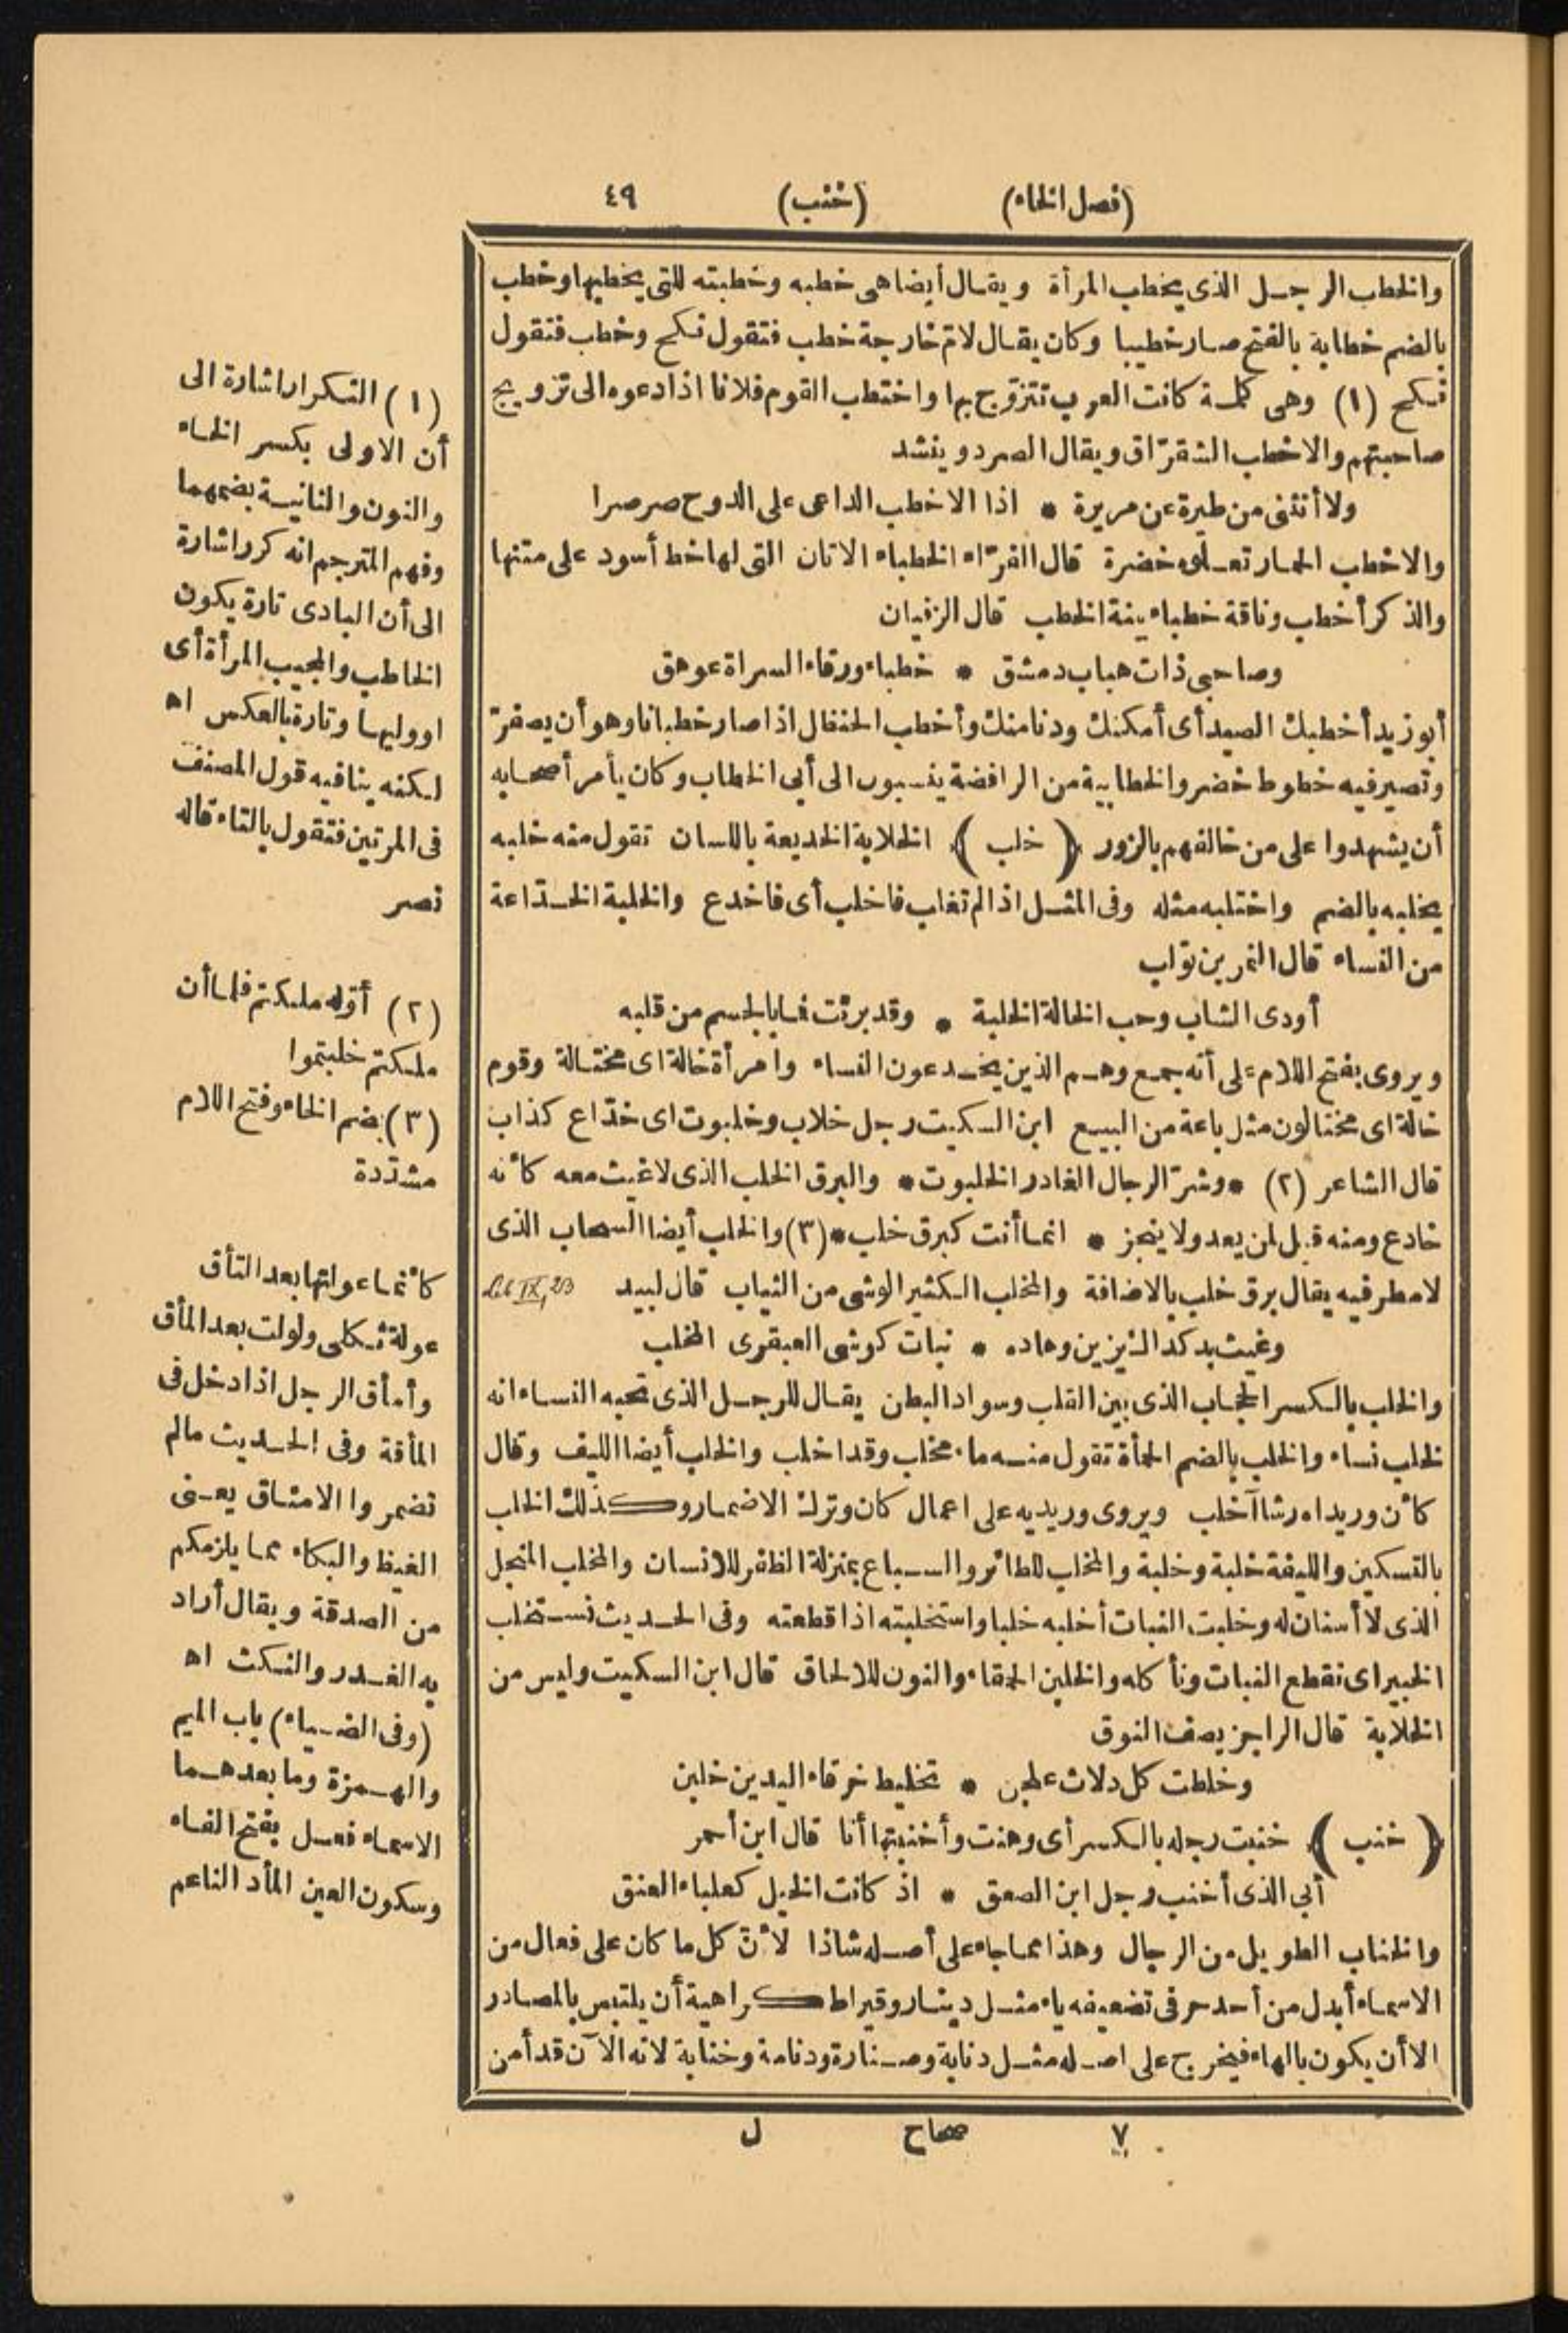 (فصل الخاء) (خنب) ٤٩
والخطب الرجل الذى يخطب المرأة ويقال أيضا هى خطبه وخطبته للتى يخطبها وخطب
بالضم خطابة بالفتح صار خطيبا وكان يقال لامّ خارجة خطب فتقول نكح وخطب فتقول
نكح (١) وهى كلمة كانت العرب تتزوّج بها واختطب القوم فلانا اذا دعوه الى تزويج
صاحبتهم والاخطب الشقرّاق ويقال الصرد وينشد
ولا أنثنى من طيرة عن مريرة * اذا الاخطب الداعى على الدوح صرصرا
والاخطب الحمار تعلوه خضرة قال الفرّاء الخطباء الاتان التى لها خط أسود على متنها
والذكر أخطب وناقة خطباء بينة الخطب قال الزفيان
وصاحبى ذات هباب دمشق * خطباء ورقاء السراة عوهق
أبو زيد أخطبك الصيد أى أمكنك ودنا منك وأخطب الحنظل اذا صار خطبانا وهو أن يصفرّ
وتصير فيه خطوط خضر والخطابية من الرافضة ينسبون الى أبى الخطاب وكان يأمر أصحابه
أن يشهدوا على من خالفهم بالزور (خلب) الخلابة الخديعة باللسان تقول منه خلبه
يخلبه بالضم واختلبه مثله وفى المثل اذا لم تغلب فاخلب أى فاخدع والخلبة الخدّاعة
من النساء قال النمر بن تولب
أودى الشباب وحب الخالة الخلبة * وقد برئت فما بالجسم من قلبه
ويروى بفتح اللام على أنه جمع وهم الذين يخدعون النساء وامرأة خالة اى مختالة وقوم
خالة اى مختالون مثل باعة من البيع ابن السكيت رجل خلاب وخلبوت اى خدّاع كذاب
قال الشاعر (٢) * وشرّ الرجال الغادر الخلبوت * والبرق الخلب الذى لا غيث معه كأنه
خادع ومنه قيل لمن يعد ولا ينجز * انما أنت كبرق خلب * (٣) والخلب أيضا السحاب الذى
لا مطر فيه يقال برق خلب بالاضافة والمخلب الكثير الوشى من الثياب قال لبيد
وغيث بدكداك يزين وهاده * نبات كوشى العبقرى المخلب
والخلب بالكسر الحجاب الذى بين القلب وسواد البطن يقال للرجل الذى تحبه النساء انه
لخلب نساء والخلب بالضم الحمأة تقول منه ماء مخلب وقد اخلب والخلب أيضا الليف وقال
كأن وريداه رشاآ خلب ويروى وريديه على اعمال كان وترك الاضمار وكذلك الخلب
بالتسكين والليفة خلبة وخلبة والمخلب للطائر والسباع بمنزلة الظفر للانسان والمخلب المنجل
الذى لا أسنان له وخلبت النبات أخلبه خلبا واستخلبته اذا قطعته وفى الحديث نستخلب
الخبير اى نقطع النبات ونأكله والخلبن الحمقاء والنون للالحاق قال ابن السكيت وليس من
الخلابة قال الراجز يصف النوق
وخلطت كل دلاث علجن * تخليط خرقاء اليدين خلبن
(خنب) خنبت رجله بالكسر أى وهنت وأخنبتها أنا قال ابن أحمر
أبى الذى أخنب رجل ابن الصعق * اذ كانت الخيل كعلباء العنق
والخناب الطويل من الرجال وهذا مما جاء على أصله شاذا لأنّ كل ما كان على فعال من
الاسماء أبدل من أحد حرفى تضعيفه ياء مثل دينار وقيراط كراهية أن يلتبس بالمصادر
الا أن يكون بالهاء فيخرج على اصله مثل دنابة وصنارة ودنامة وخنابة لانه الآن قد أمن
(١) التكرار اشارة الى
أن الاولى بكسر الخاء
والنون والثانية بضمهما
وفهم المترجم انه كرر اشارة
الى أن البادى تارة يكون
الخاطب والمجيب المرأة أى
او وليها وتارة بالعكس اه
لكنه ينافيه قول المصنف
فى المرتين فتقول بالتاء قاله
نصر
(٢) أوّله ملكتم فلما أن
ملكتم خلبتموا
(٣) بضم الخاء وفتح اللام
مشدّدة
كأنما عولتها بعد التأق
عولة ثكلى ولولت بعد المأق
وأمأق الرجل اذا دخل فى
المأقة وفى الحديث مالم
تضمروا الامئاق يعنى
الغيظ والبكاء مما يلزمكم
من الصدقة ويقال أراد
به الغدر والنكث اه
(وفى الضياء) باب الميم
والهمزة وما بعدهما
الاسماء فعل بفتح الفاء
وسكون العين المأد الناعم
٧ صحاح ل